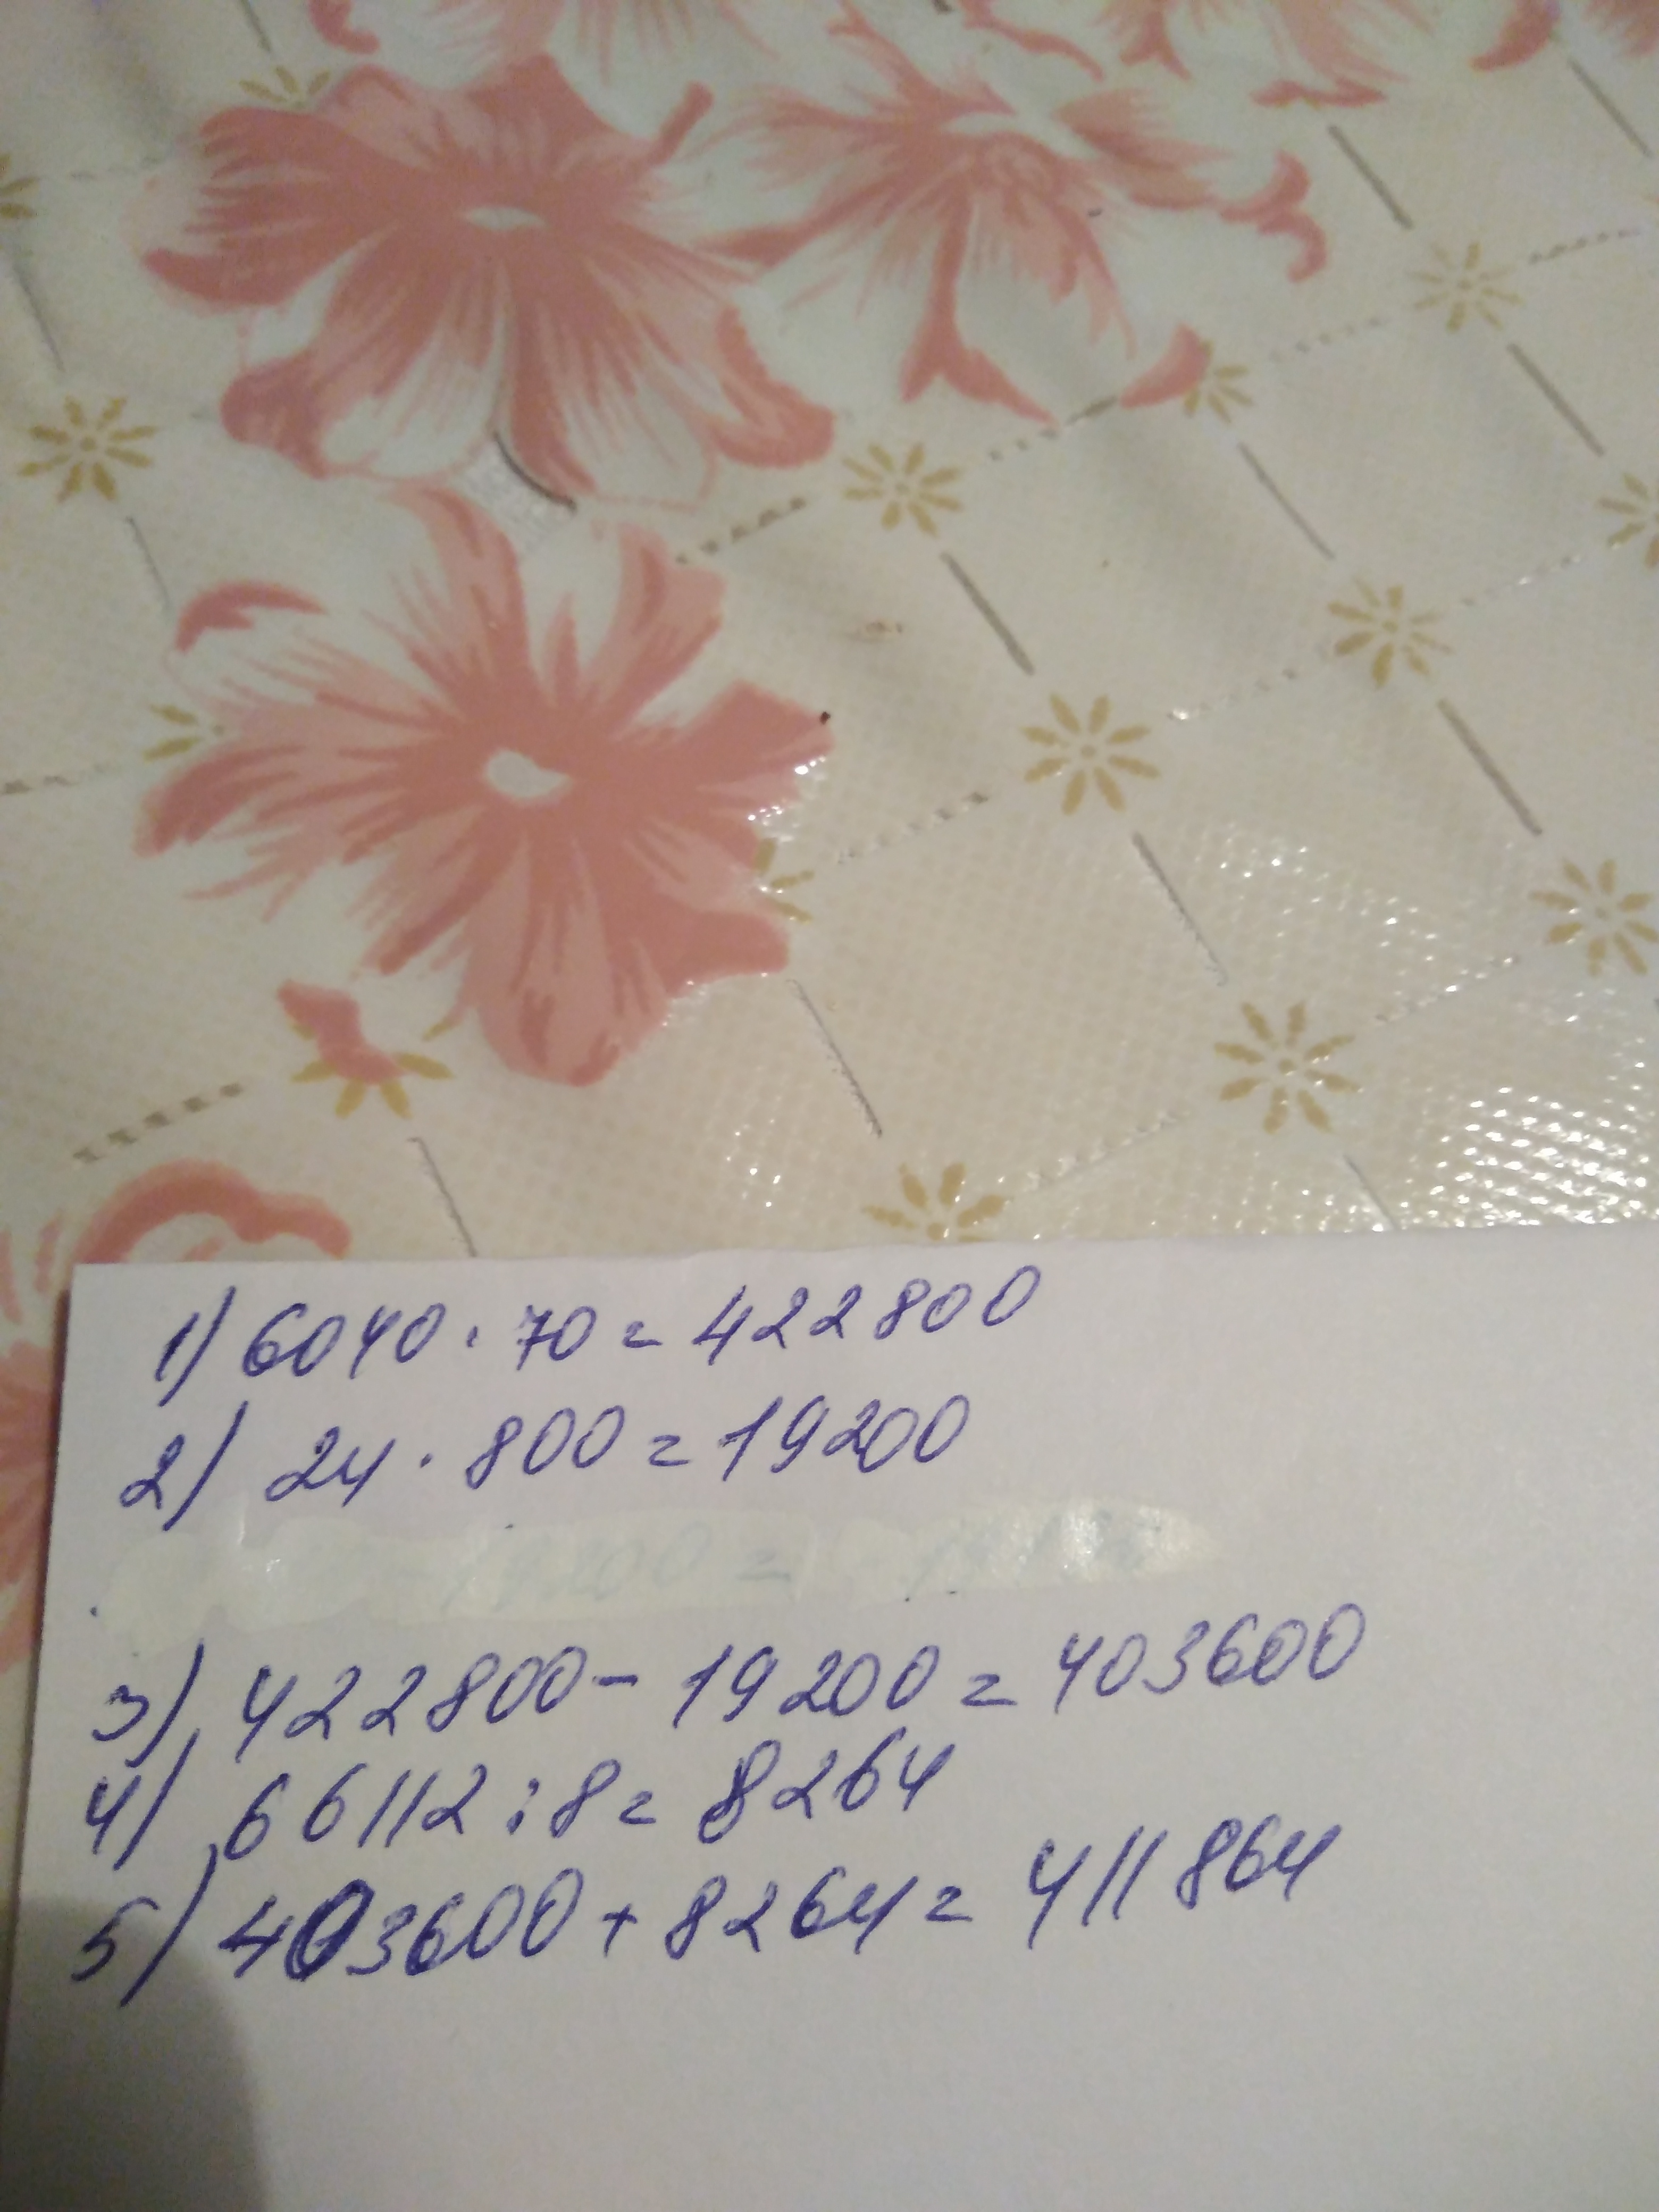 1) 6040 · 70 = 422800
2) 24 · 800 = 19200
3) 422800 - 19200 = 403600
4) 66112 : 8 = 8264
5) 403600 + 8264 = 411864